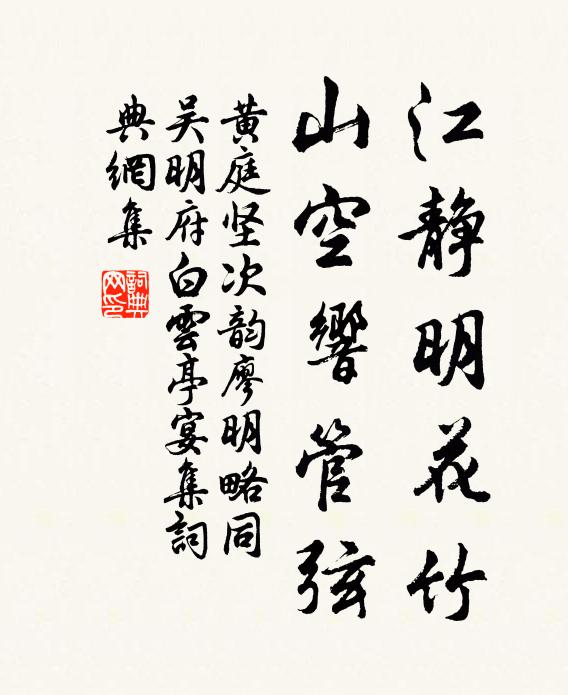 江静明花竹
山空響管弦
黄庭坚次韵廖明略同
吴明府白雲亭宴集詞
典網集
詞典網印